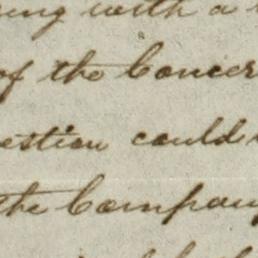 ing with a
of the Concer
estion could
the Company